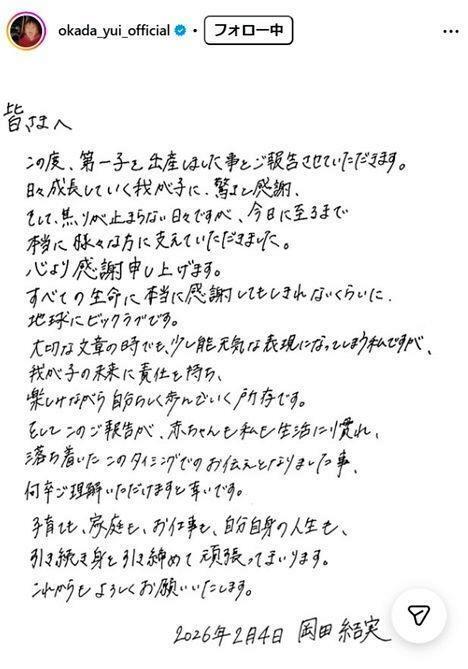 okada_yui_official • フォロー中
皆さまへ
この度、第一子を出産しました事をご報告させていただきます。
日々成長していく我が子に、驚きと感謝、
そして、焦りが止まらない日々ですが、今日に至るまで
本当に様々な方に支えていただきました。
心より感謝申し上げます。
すべての生命に本当に感謝してもしきれないくらいに、
地球にビックラブです。
大切な文章の時でも、少し能天気な表現になってしまう私ですが、
我が子の未来に責任を持ち、
楽しみながら自分らしく歩んでいく所存です。
そしてこのご報告が、赤ちゃんも私も生活に慣れ、
落ち着いたこのタイミングでのお伝えとなりました事、
何卒ご理解いただけますと幸いです。
子育ても、家庭も、お仕事も、自分自身の人生も、
引き続き身を引き締めて頑張ってまいります。
これからもよろしくお願いいたします。
2026年2月4日 岡田結実